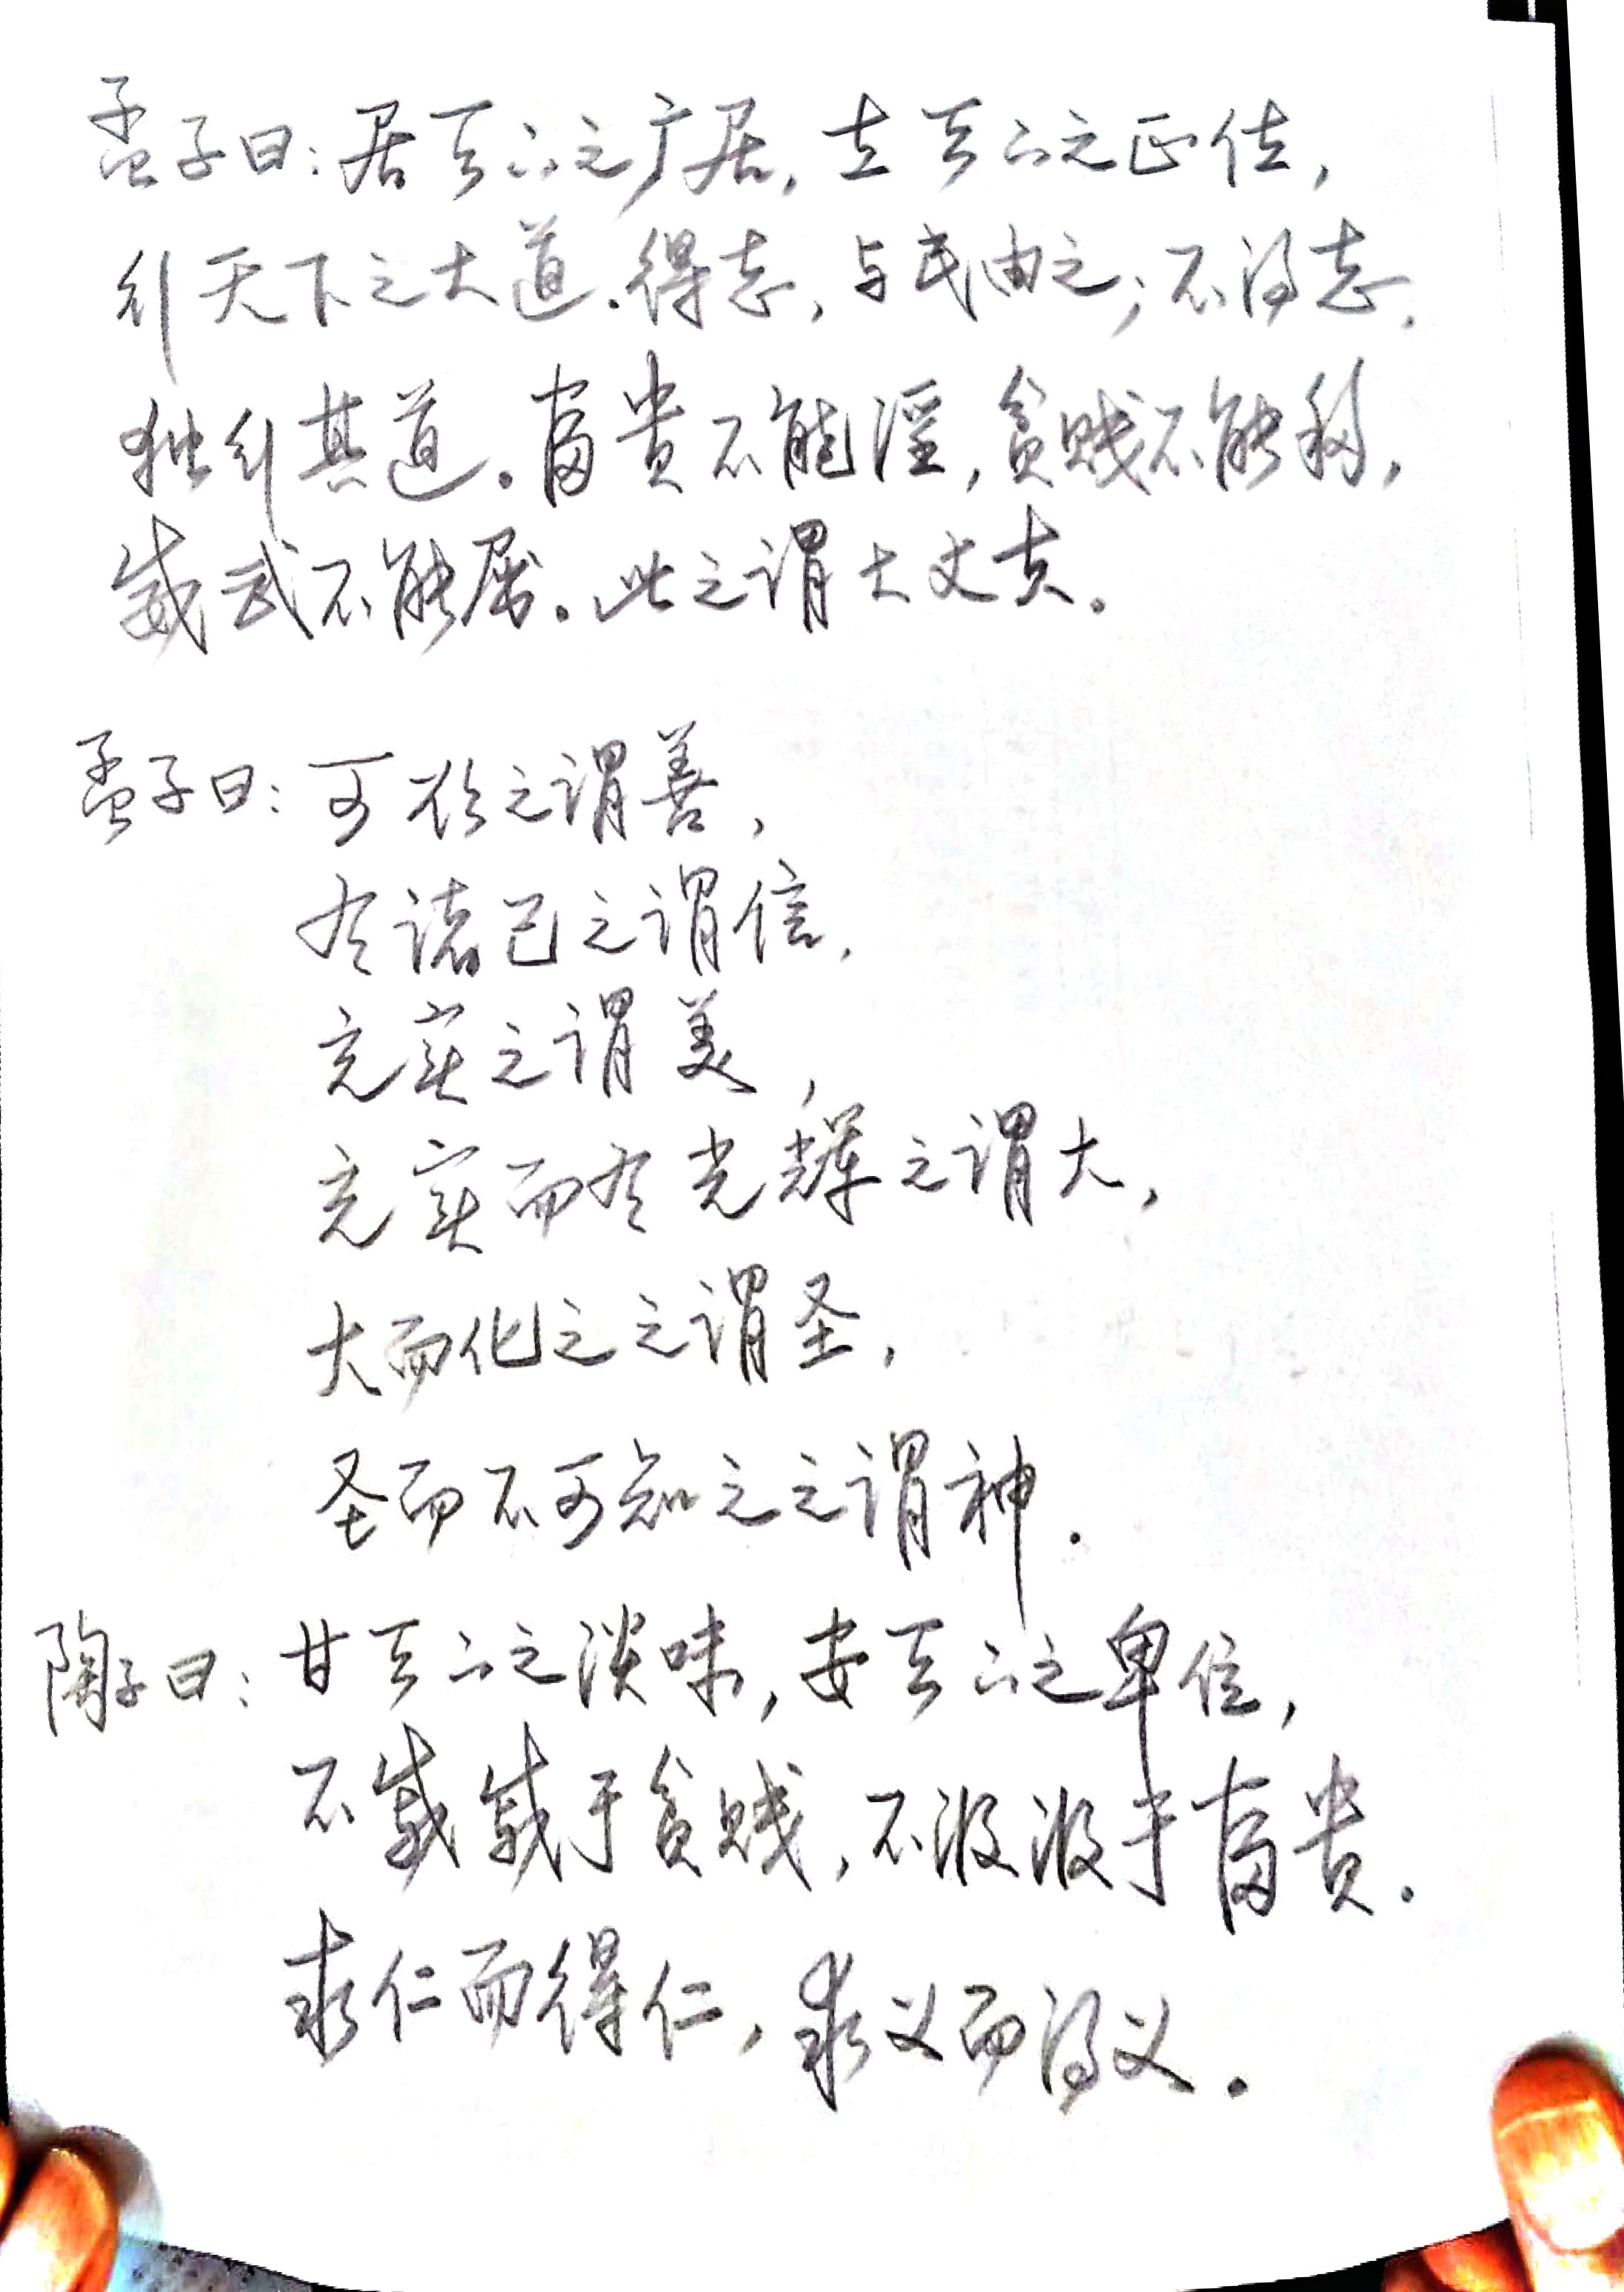 孟子曰：居天下之广居，立天下之正位，
行天下之大道．得志，与民由之；不得志，
独行其道。富贵不能淫，贫贱不能移，
威武不能屈。此之谓大丈夫。
孟子曰：可欲之谓善，
有诸己之谓信，
充实之谓美，
充实而有光辉之谓大，
大而化之之谓圣，
圣而不可知之之谓神．
陶子曰：甘天下之淡味，安天下之卑位，
不戚戚于贫贱，不汲汲于富贵．
求仁而得仁，求义而得义．